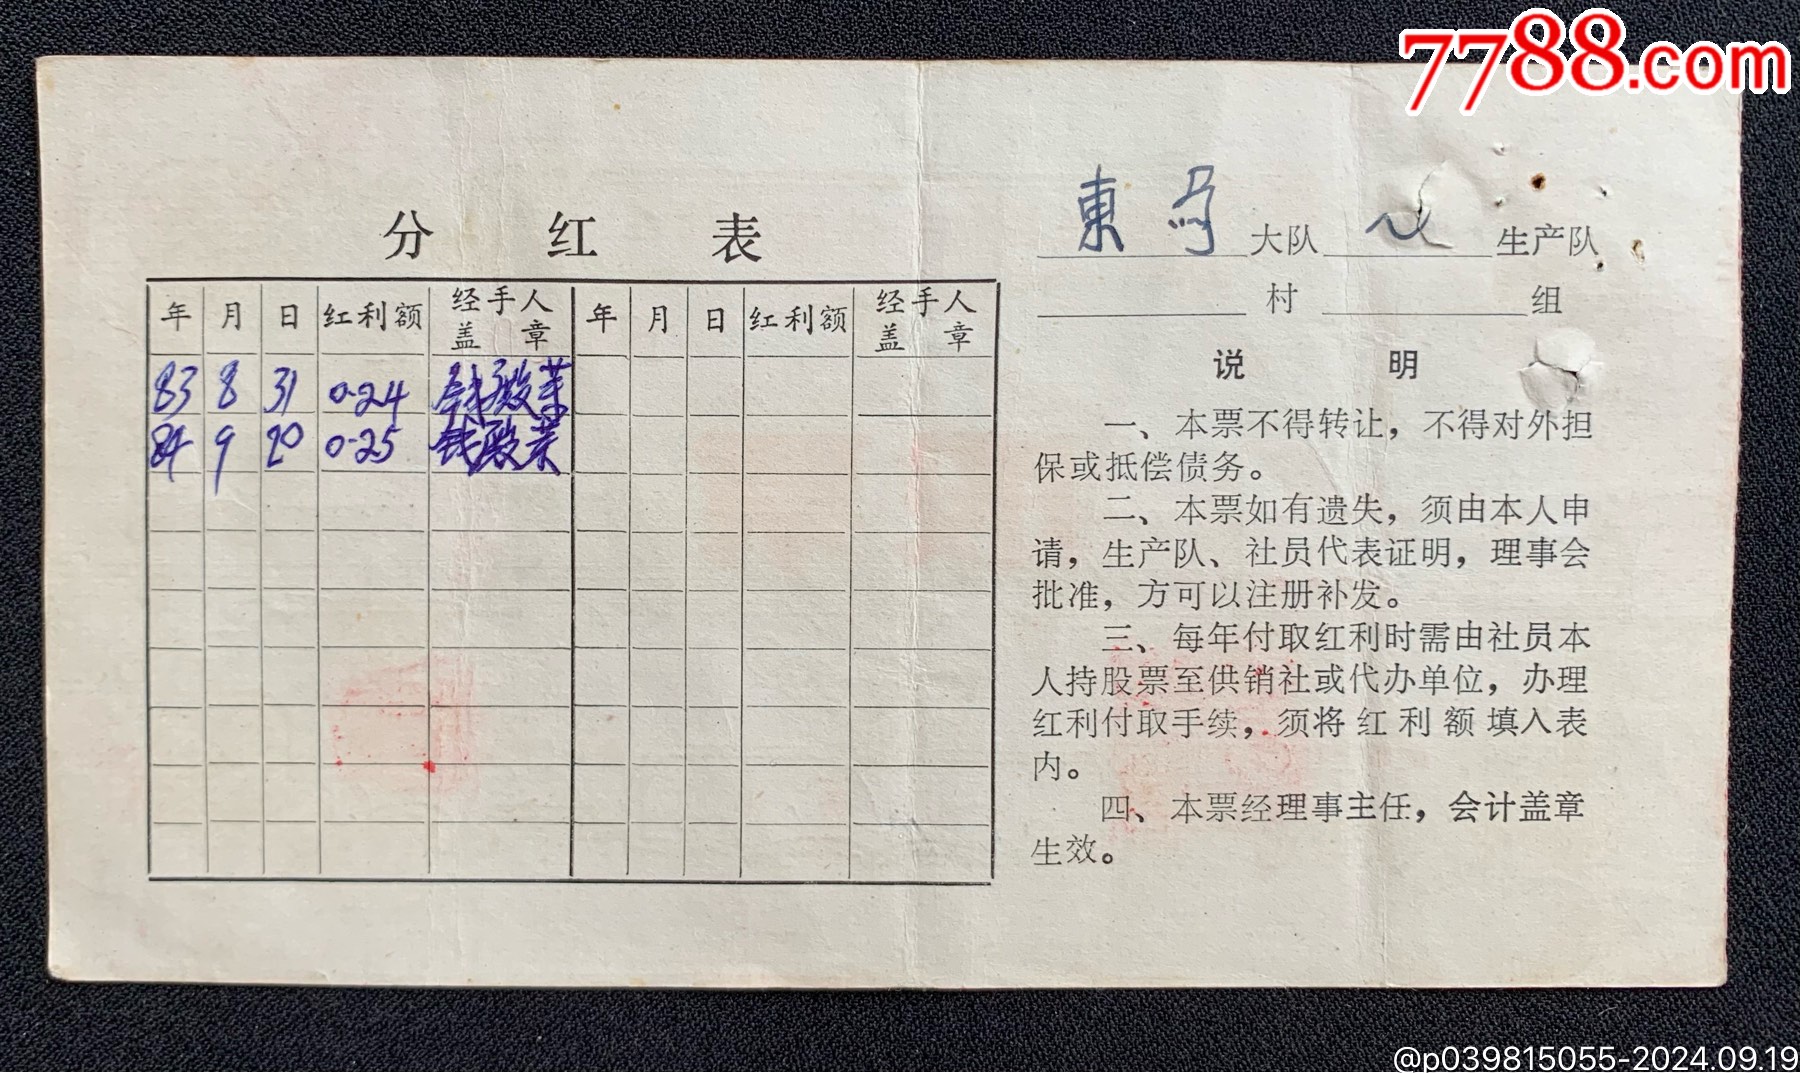 7788.com
分 红 表
年 月 日 红利额 经手人盖章 年 月 日 红利额 经手人盖章
83 8 31 0.24
84 9 20 0.25
東 大队 生产队
村 组
说 明
一、本票不得转让，不得对外担
保或抵偿债务。
二、本票如有遗失，须由本人申
请，生产队、社员代表证明，理事会
批准，方可以注册补发。
三、每年付取红利时需由社员本
人持股票至供销社或代办单位，办理
红利付取手续，须将红利额填入表
内。
四、本票经理事主任，会计盖章
生效。
@p039815055-2024.09.19